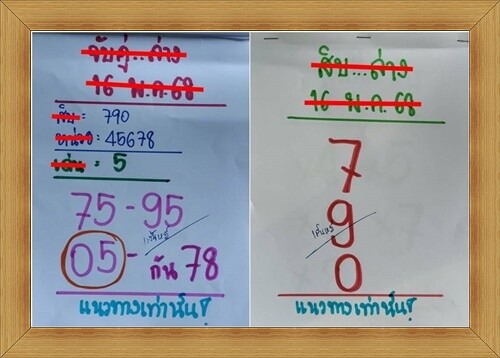 จับคู่...ล่าง
16 พ.ค.68
สิบ = 790
หน่วย = 45678
เด่น = 5
75-95
05-กัน 78
แนวทางเท่านั้น!
สิบ...ล่าง
16 พ.ค.68
7
9
0
แนวทางเท่านั้น!